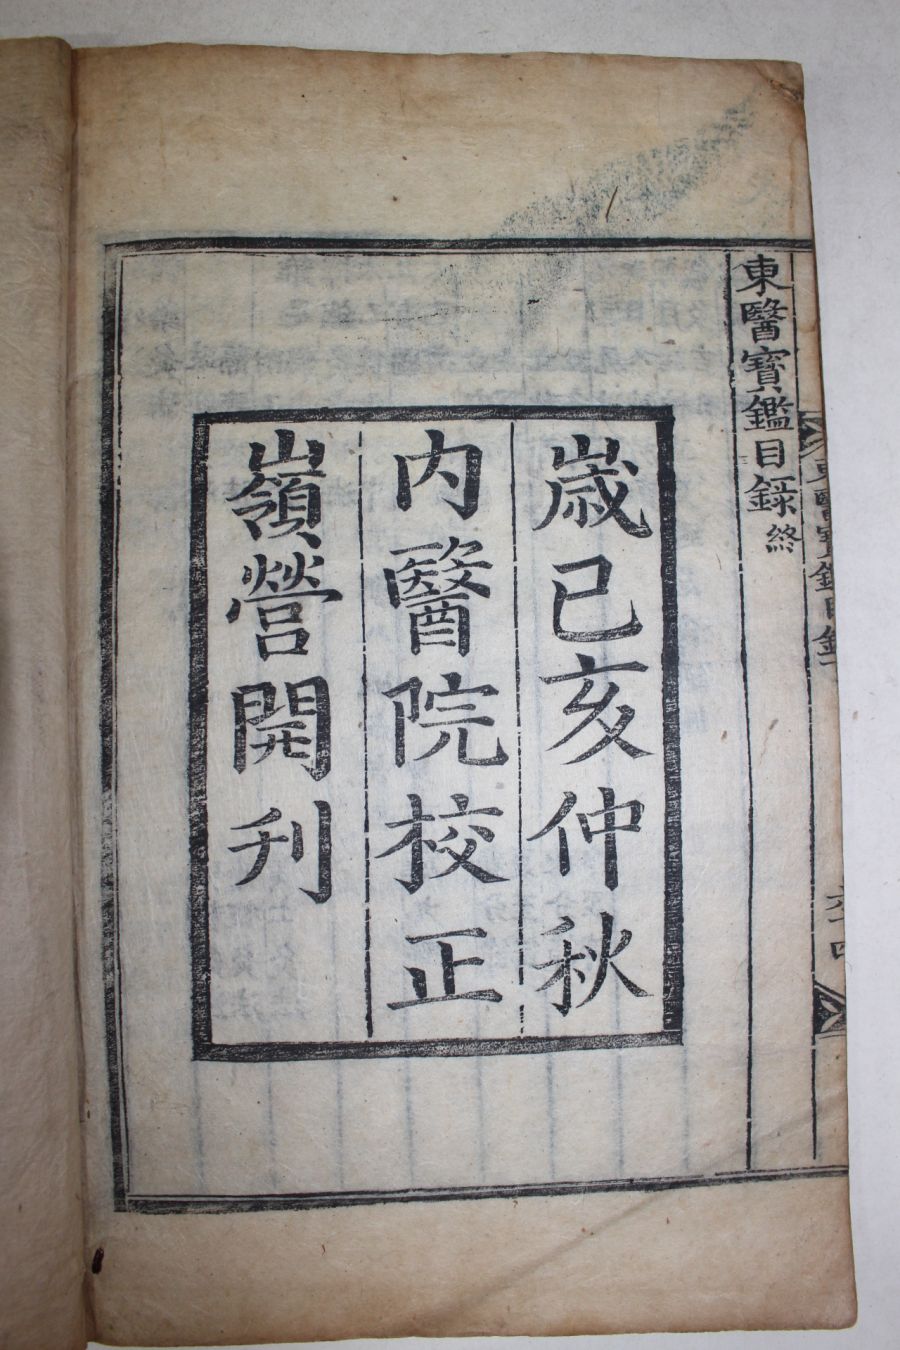 東醫寶鑑目録終
歳己亥仲秋
内醫院校正
嶺營開刊